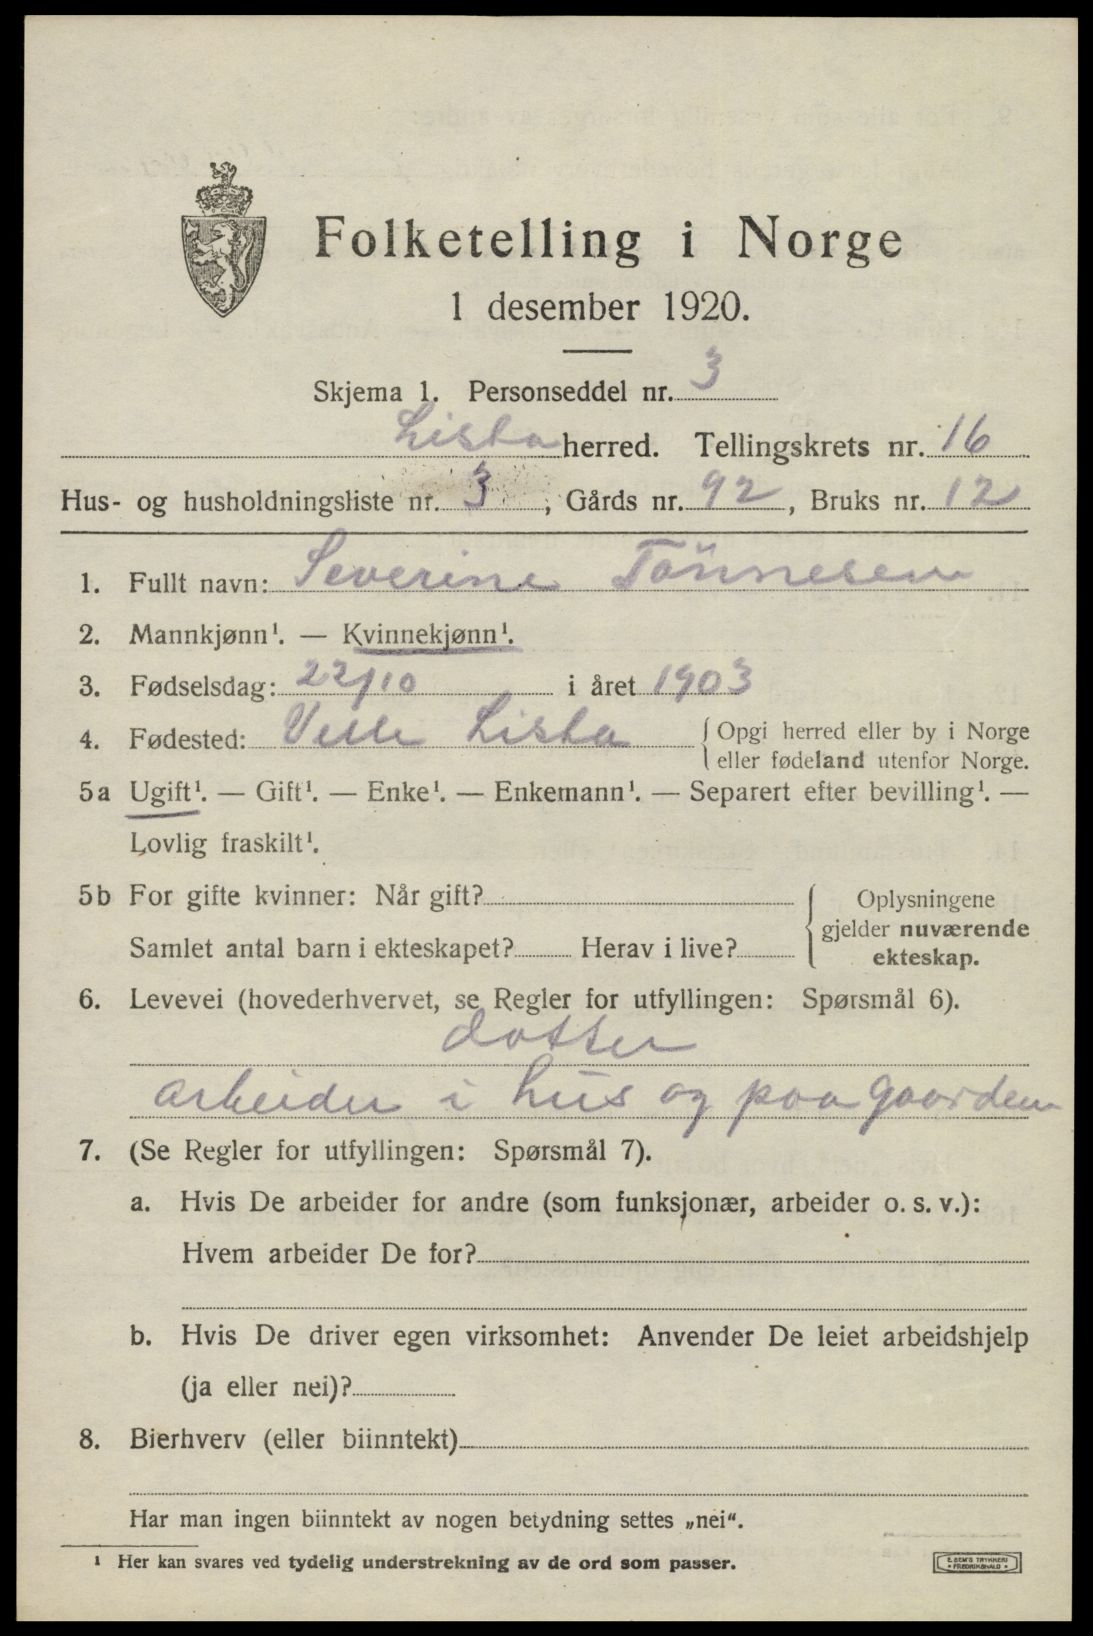 Folketelling i Norge
1 desember 1920.
Skjema 1. Personseddel nr. 3
Lista herred. Tellingskrets nr. 16
Hus- og husholdningsliste nr. 3, Gårds nr. 92, Bruks nr. 12
1. Fullt navn: Severine Tönnesen
2. Mannkjønn¹. — Kvinnekjønn¹.
3. Fødselsdag: 22/10 i året 1903
4. Fødested: Lista {Opgi herred eller by i Norge
eller fødeland utenfor Norge.
5a Ugift¹. — Gift¹. — Enke¹. — Enkemann¹. — Separert efter bevilling¹. —
Lovlig fraskilt¹.
5b For gifte kvinner: Når gift?
Samlet antal barn i ekteskapet? Herav i live?
Oplysningene
gjelder nuværende
ekteskap.
6. Levevei (hovederhvervet, se Regler for utfyllingen: Spørsmål 6).
dotter
arbeider i hus og paa gaarden
7. (Se Regler for utfyllingen: Spørsmål 7).
a. Hvis De arbeider for andre (som funksjonær, arbeider o. s. v.):
Hvem arbeider De for?
b. Hvis De driver egen virksomhet: Anvender De leiet arbeidshjelp
(ja eller nei)?
8. Bierhverv (eller biinntekt)
Har man ingen biinntekt av nogen betydning settes „nei“.
¹ Her kan svares ved tydelig understrekning av de ord som passer.
E. SEM'S TRYKKERI
FREDRIKSHALD